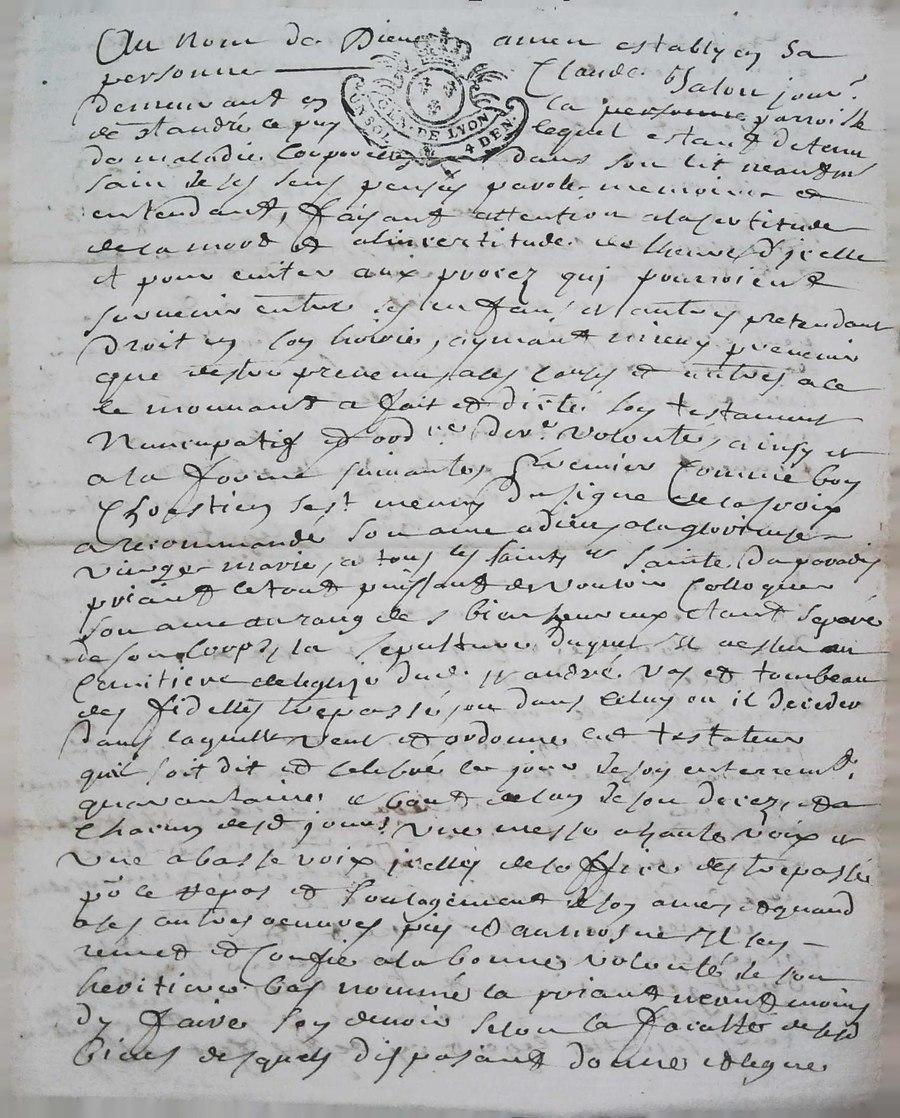 Au nom de Dieu amen estably en sa
personne Claude Salon jour.r
demeurant en la personne parroisse
de st andré le puy lequel estant detenu
de maladie corporelle dans son lit neantms
sain de ses sens pensés parole memoire et
entendant, faisant attention a la sertitude
de la mord et a l'insertitude de lheure d'jcelle
et pour eviter aux procez qui pourroient
survenir entre ses enfans et autres pretendant
droit en son hoirie, aymant mieux prevenir
que destre prevenu, a ces causes et autres a ce
le mouvant a fait et dicté son testament
nuncupatif et ord.re de.re volonté, ainsy et
a la forme suivante, premier comme bon
Chrestien sest muny du signe de la croix
a recommandé son ame a dieu a la glorieuse
vierge marie, a tous les saints et sainte du paradis
priant le tout puissant de vouloir colloquer
son ame au rang des bienheureux etant separé
de son corps, la sepulture duquel Il a eslu au
cemitiere de leglise dud. st andré vas et tombeau
des fidelles trepassé, ou dans celuy ou il decedera
dans laquelle veut et ordonne led testateur
quil soit dit et celebré le jour de son enterremt,
quarantaine et bout de lan de son decez, et a
chacun desd jours une messe a haute voix et
une a basse voix jcelles de loffice des trepassés
po.r le repos et soulagement de son ame, et quand
a ses autres oeuvres pies et aumosne Il sen
remet et confie a la bonne volonté de son
heritiere bas nommé la priant neantmoins
dy faire son devoir selon la faculté de sesd
biens desquels disposant donne et legue